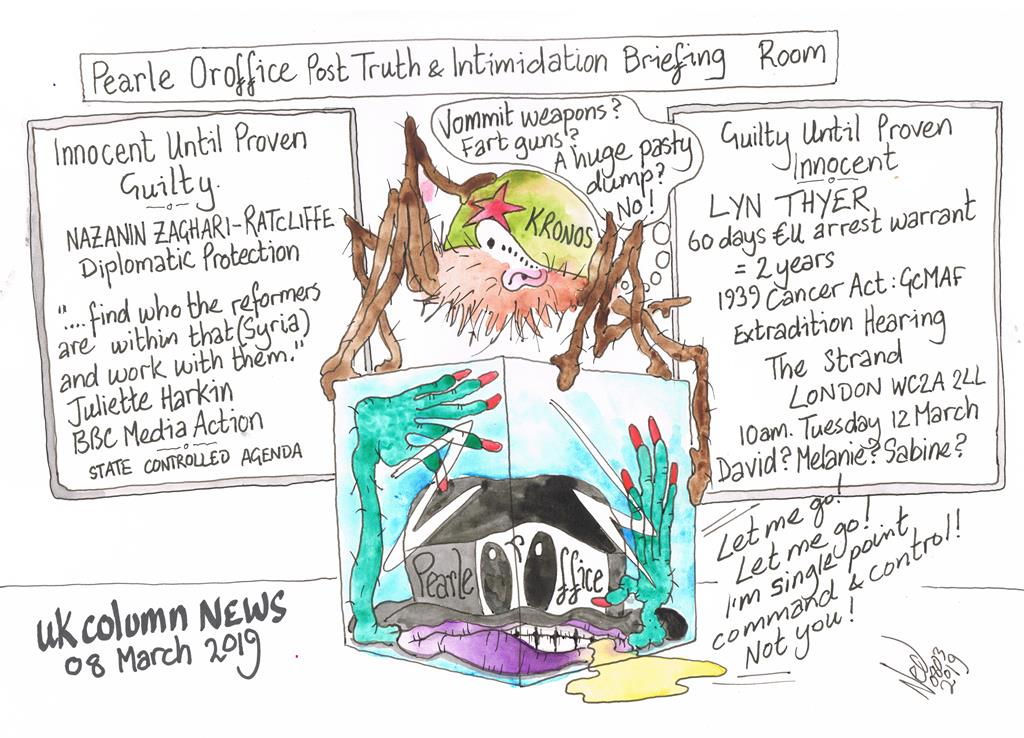 Pearle Oroffice Post Truth & Intimidation Briefing Room
Innocent Until Proven
Guilty.
NAZANIN ZAGHARI-RATCLIFFE
Diplomatic Protection
"....find who the reformers
are within that (Syria)
and work with them."
Juliette Harkin
BBC Media Action
STATE CONTROLLED AGENDA
Vommit weapons?
Fart guns?
A huge pasty
dump?
No!
KRONOS
Guilty Until Proven
Innocent
LYN THYER
60 days €U arrest warrant
= 2 years
1939 Cancer Act: GCMAF
Extradition Hearing
The Strand
LONDON WC2A 2LL
10am. Tuesday 12 March
David? Melanie? Sabine?
Pearle Office
Let me go!
Let me go!
I'm single point
command & control!
Not you!
UK column NEWS
08 March 2019
0803
2019